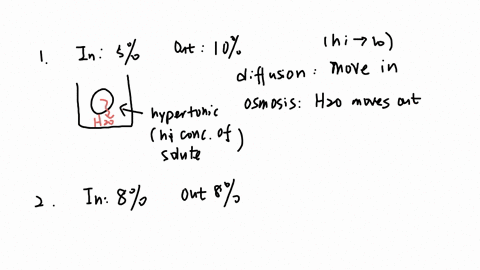 1. In: 5% Out: 10% (hi → lo)
diffuson: move in
osmosis: H2O moves out
H2O
hypertonic
(hi conc. of
solute)
2. In: 8% Out 8%